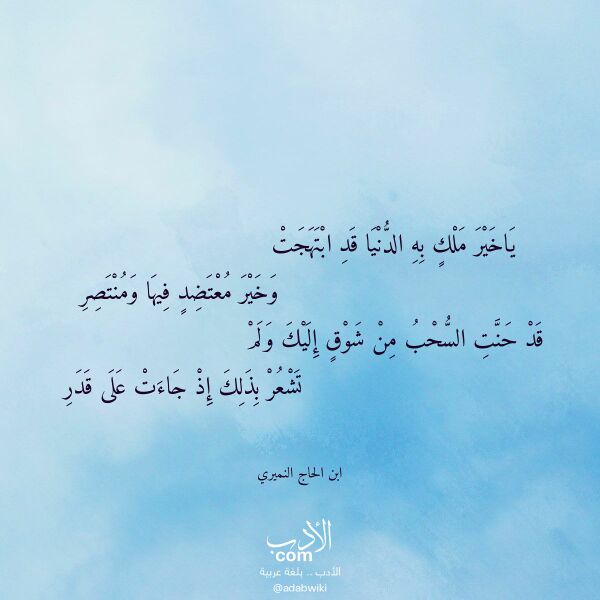 يَاخَيْرَ مَلْكٍ بِهِ الدُّنْيَا قَدِ ابْتَهَجَتْ
وَخَيْرَ مُعْتَضِدٍ فِيهَا وَمُنْتَصِرِ
قَدْ حَنَّتِ السُّحْبُ مِنْ شَوْقٍ إِلَيْكَ وَلَمْ
تَشْعُرْ بِذَلِكَ إِذْ جَاءَتْ عَلَى قَدَرِ
ابن الحاج النميري
الأدب
com
الأدب .. بلغة عربية
@adabwiki